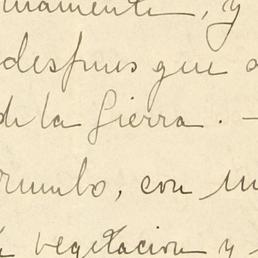 namente, y
despues que a
de la Sierra. -
rumbo, con un
vegetacion y